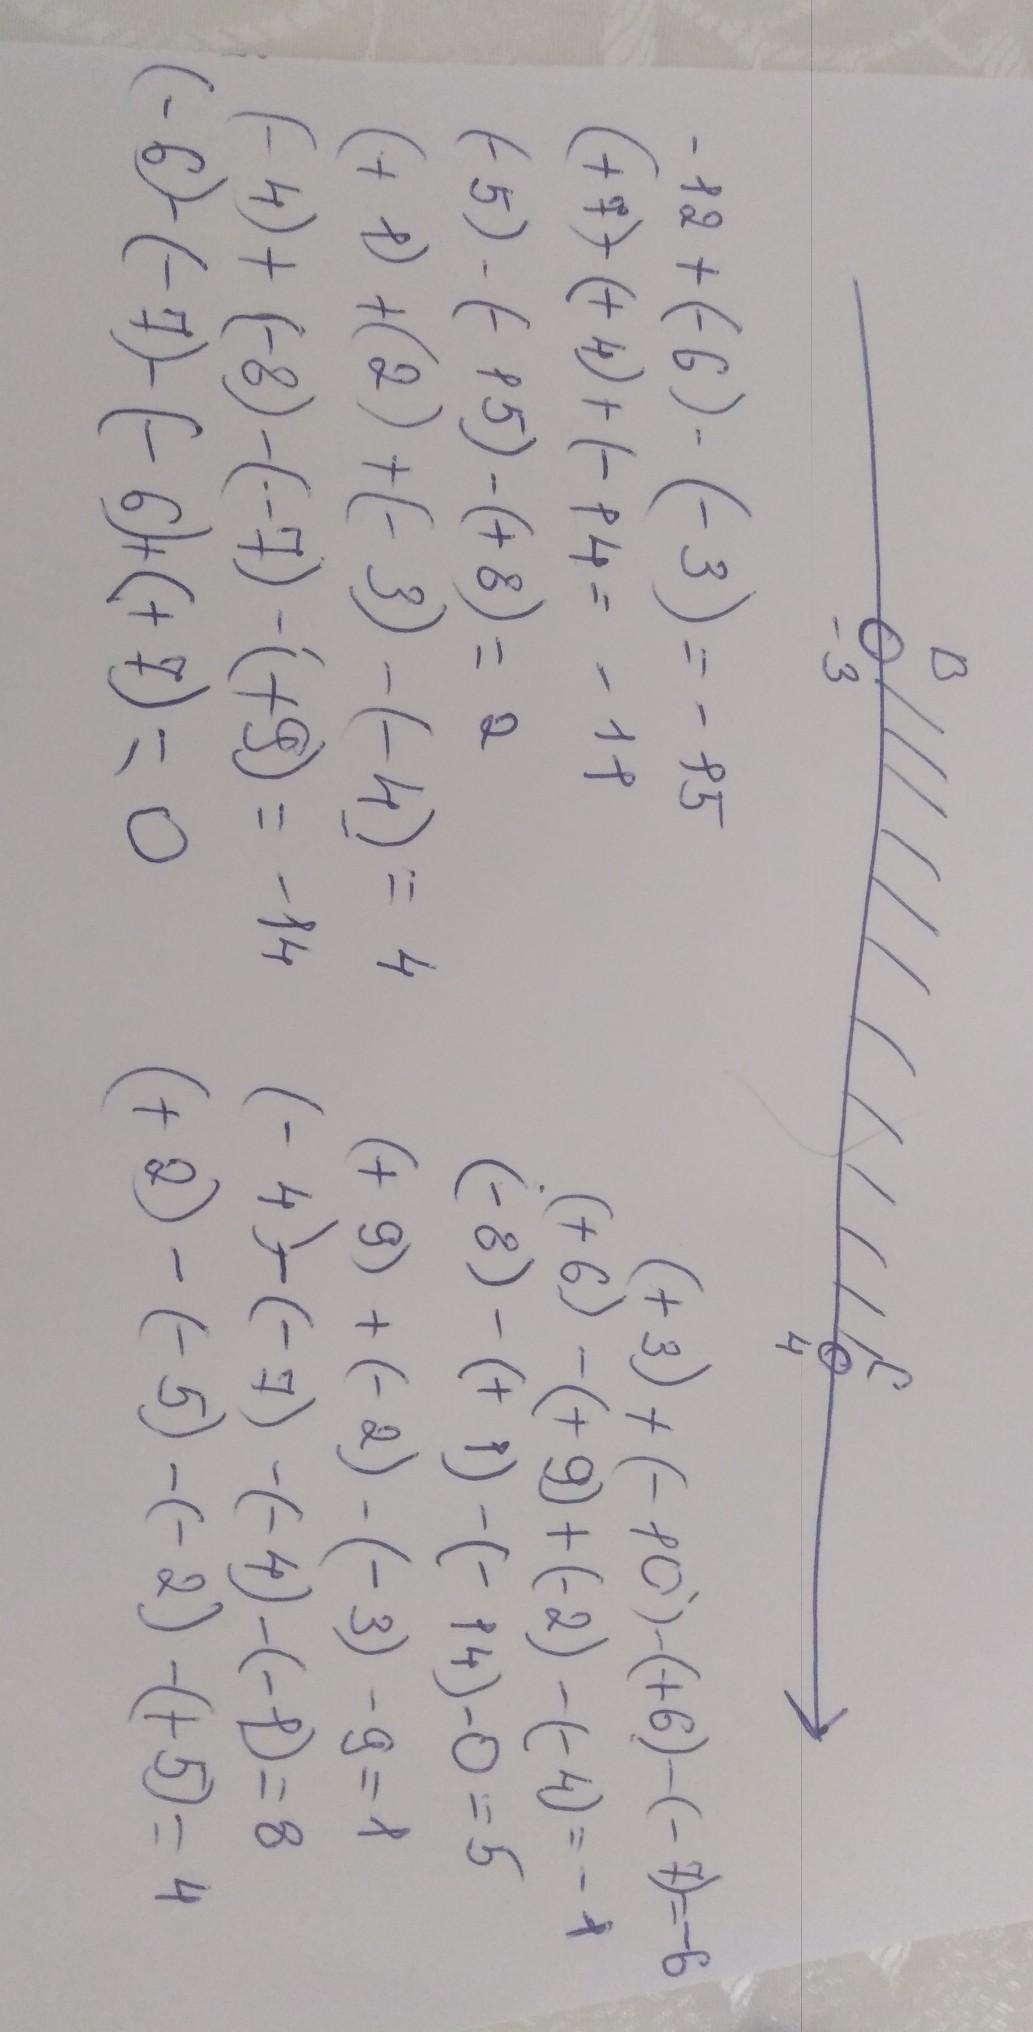 B C
-3 4
-12 + (-6) - (-3) = -15
(+7) + (+4) + (-14 = -11
(-5) - (-15) - (+8) = 2
(+1) + (2) + (-3) - (-4) = 4
(-4) + (-8) - (-7) - (+9) = -14
(-6) - (-7) - (-6) + (+7) = 0
(+3) + (-10) - (+6) - (-7) = -6
(+6) - (+9) + (-2) - (-4) = -1
(-8) - (+1) - (-14) - 0 = 5
(+9) + (-2) - (-3) - 9 = 1
(-4) - (-7) - (-4) - (-1) = 8
(+2) - (-5) - (-2) - (+5) = 4